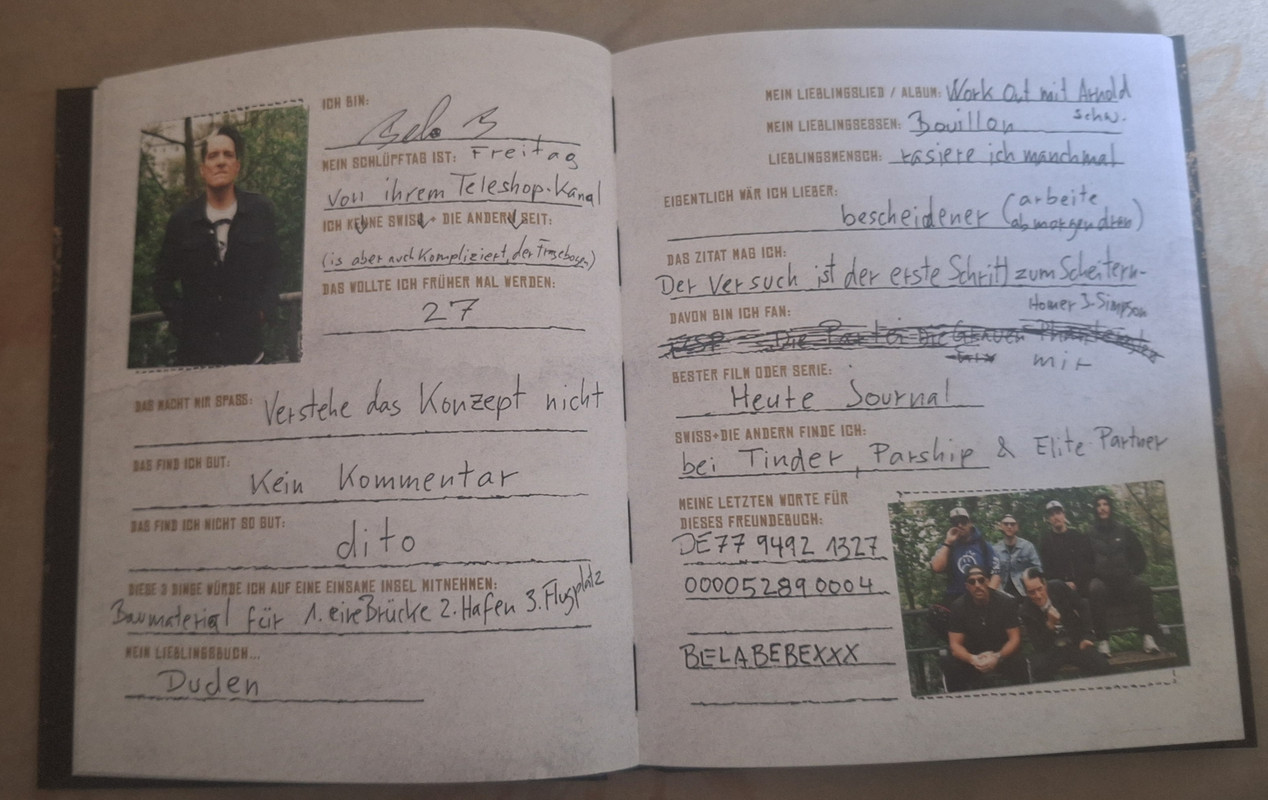 ICH BIN:
Bela B
MEIN SCHLÜPFTAG IST: Freitag
von ihrem Teleshop-Kanal
ICH KENNE SWISS + DIE ANDERN SEIT:
(is aber auch kompliziert, der Fragebogen)
DAS WOLLTE ICH FRÜHER MAL WERDEN:
27
DAS MACHT MIR SPASS: Verstehe das Konzept nicht
DAS FIND ICH GUT:
Kein Kommentar
DAS FIND ICH NICHT SO GUT:
dito
DIESE 3 DINGE WÜRDE ICH AUF EINE EINSAME INSEL MITNEHMEN:
Baumaterial für 1. eine Brücke 2. Hafen 3. Flugplatz
MEIN LIEBLINGSBUCH...
Duden
MEIN LIEBLINGSLIED / ALBUM: Work Out mit Arnold
schw.
MEIN LIEBLINGSESSEN: Bouillon
LIEBLINGSMENSCH: rasiere ich manchmal
EIGENTLICH WÄR ICH LIEBER:
bescheidener (arbeite
ab morgen dran)
DAS ZITAT MAG ICH:
Der Versuch ist der erste Schritt zum Scheitern-
Homer J. Simpson
DAVON BIN ICH FAN:
Die Partei die Grauen
mir
BESTER FILM ODER SERIE:
Heute Journal
SWISS+DIE ANDERN FINDE ICH:
bei Tinder, Parship & Elite Partner
MEINE LETZTEN WORTE FÜR
DIESES FREUNDEBUCH:
DE77 9492 1327
0000 5289 0004
BELABEBEXXX